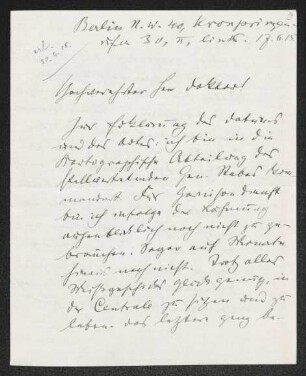 Berlin N. W. 40, Kronprinzen-
ufer 30, II, links. 17.6.15
Hochverehrter Herr Doktor!
Zur Erklärung des Datums
und des Ortes: ich bin in die
Kartographische Abteilung des
stellvertretenden Gen. Stabes kom-
mandiert. Für Garnisondienst
bin ich infolge der Lähmung
augenblicklich noch nicht zu ge-
brauchen. Sogar auf Monate
hinaus noch nicht. Trotz alles
Missgeschicks glücklich genug, in
der Centrale zu sitzen und zu
leben. Das letztere ganz be-